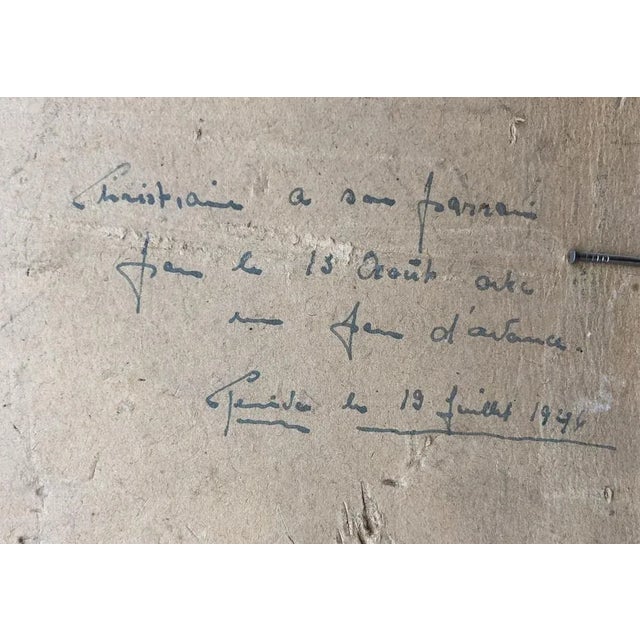 Christiane a son parrain
pour le 15 Août avec
un peu d'avance.
le 19 Juillet 194